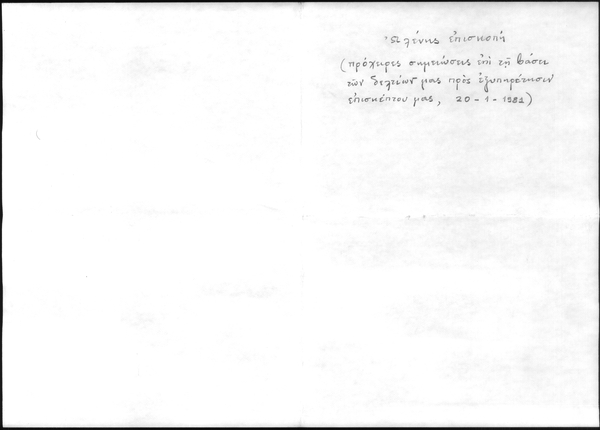 Ὠλένης ἐπισκοπή
(πρόχειρες σημειώσεις ἐπὶ τῇ βάσει
τῶν δελτίων μας πρὸς ἐξυπηρέτησιν
ἐπισκέπτου μας, 20-1-1982)